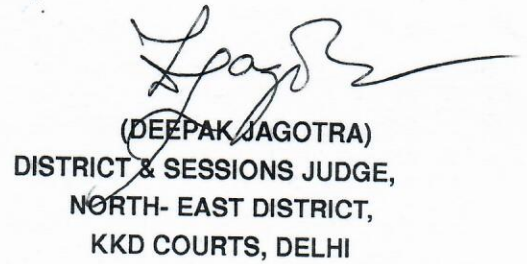 (DEEPAK JAGOTRA)
DISTRICT & SESSIONS JUDGE,
NORTH- EAST DISTRICT,
KKD COURTS, DELHI